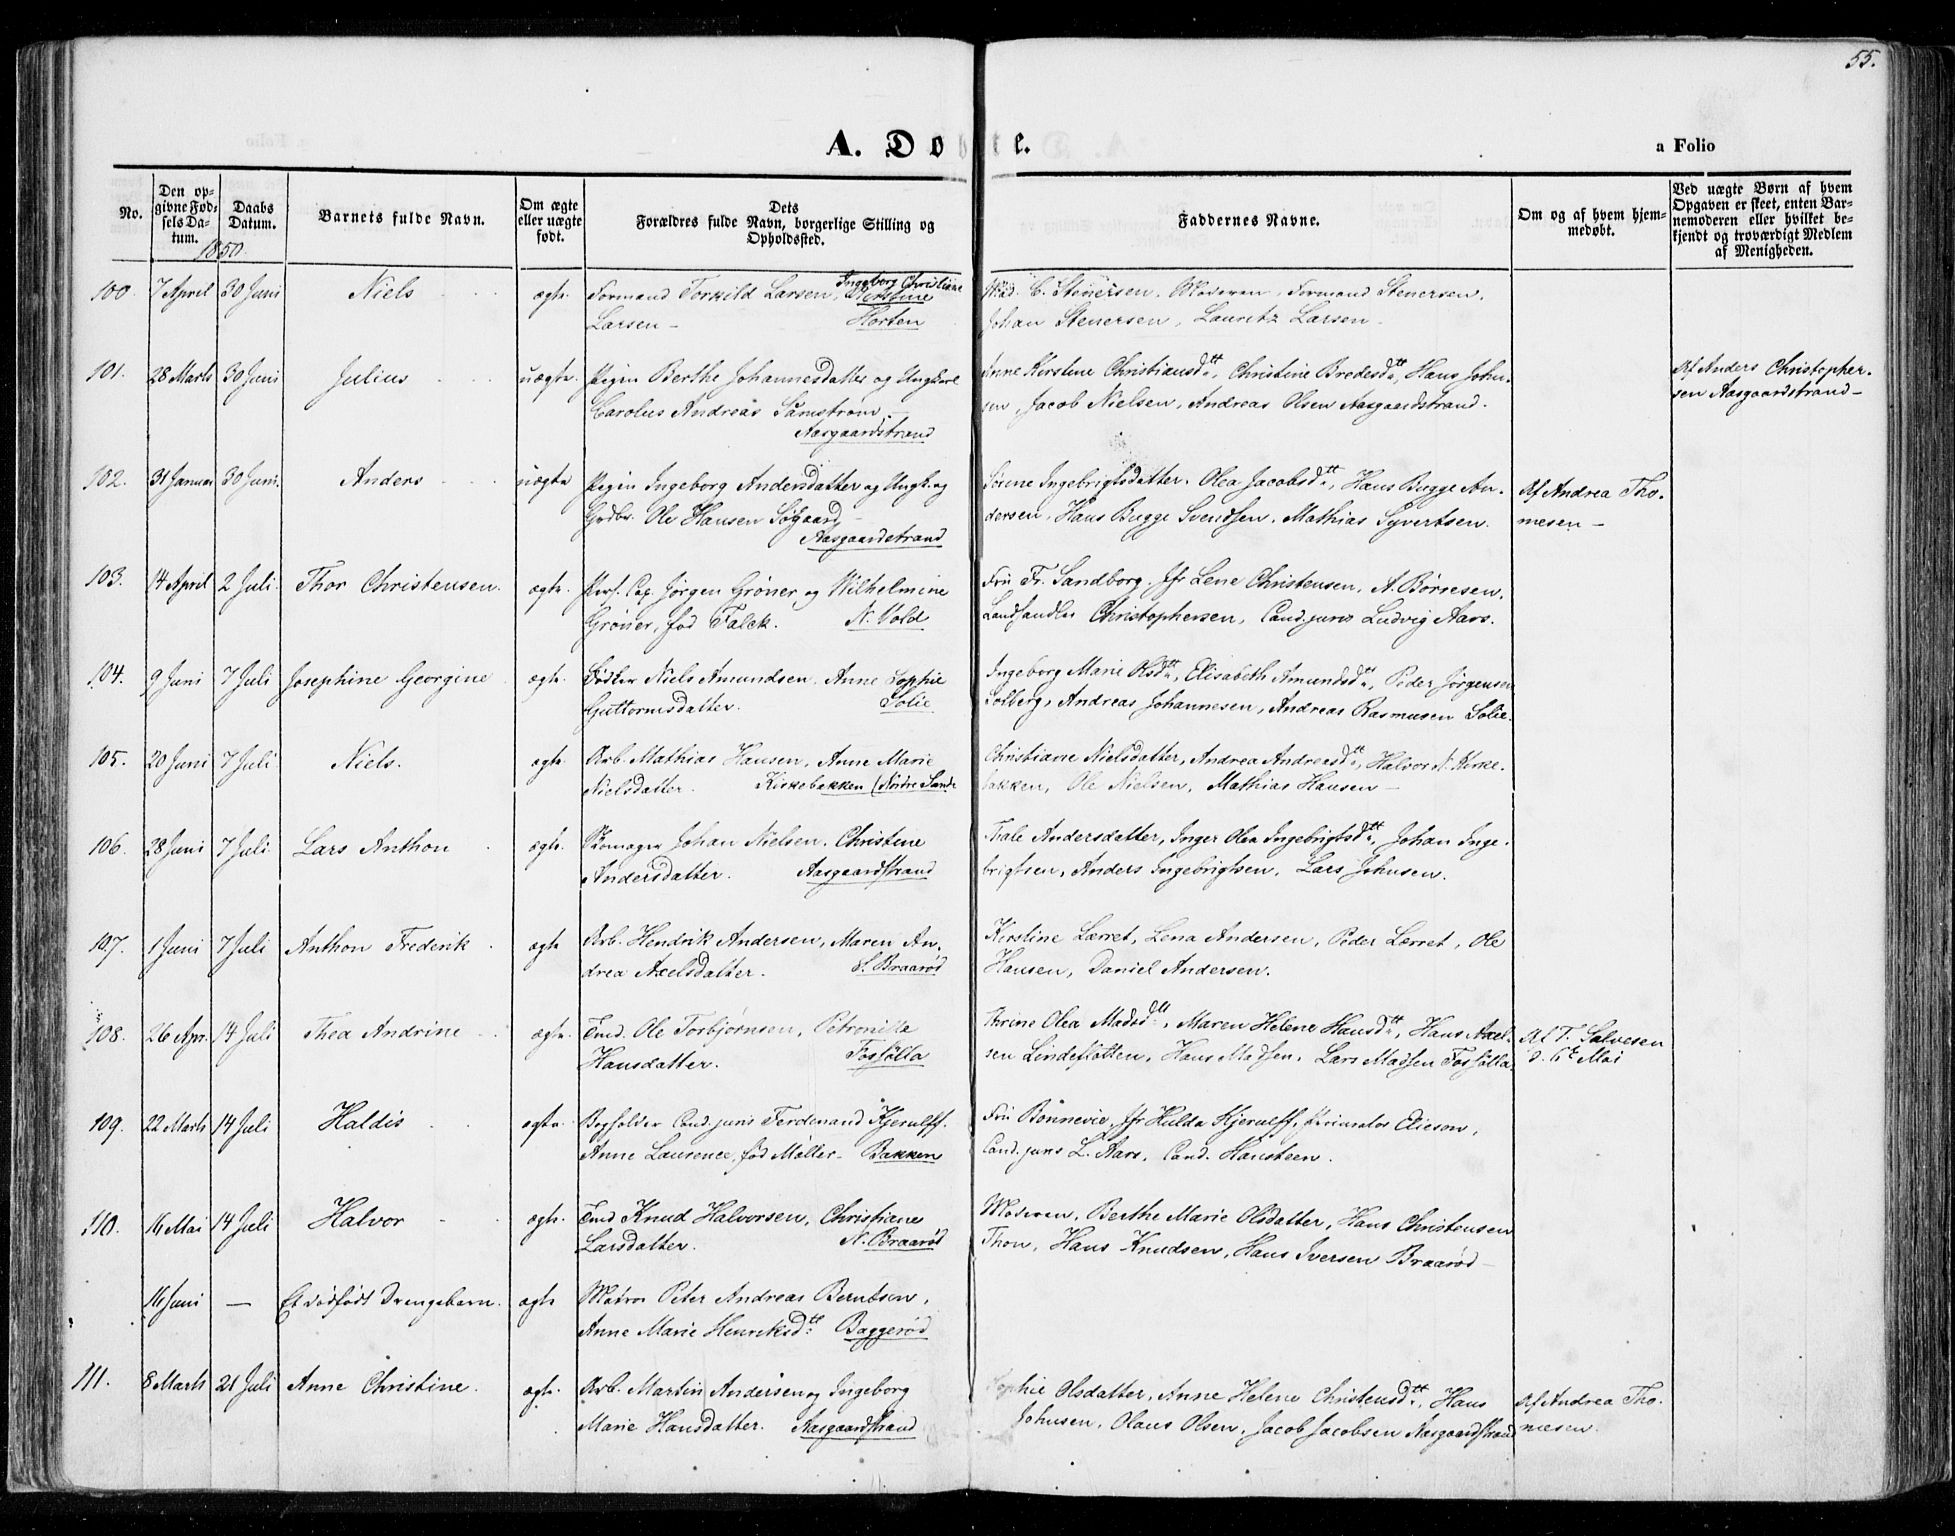 55.
A. Døbte.
a Folio
No.
Den opgivne Fødsels Datum.
Daabs Datum.
Barnets fulde Navn.
Om ægte eller uægte født.
Dets Forældres fulde Navn, borgerlige Stilling og Opholdssted.
Faddernes Navne.
Om og af hvem hjemmedøbt.
Ved uægte Børn af hvem Opgaven er skeet, enten Barnemoderen eller hvilket bekjendt og troværdigt Medlem af Menigheden.
1850.
100. 7 April 30 Juni Niels ægte. Formand Torkild Larsen, Ingeborg Christiane Mad. C. Stenersen. Moderen, Formand Stenersen.
Larsen – Horten Johan Stenersen, Lauritz Larsen.
101. 28 Marts 30 Juni Julius uægte. Pigen Berthe Johannesdatter og Ungkarl Anne Kirstine Christiansdtt, Christine Bredesdtt, Hans John- Af Anders Christopher-
Carolus Andreas Samstrøm. – sen, Jacob Nielsen, Andreas Olsen Aasgaardstrand. sen Aasgaardstrand –
Aasgaardstrand
102. 31 Januar 30 Juni. Anders uægte Pigen Ingeborg Andersdatter og Ungk. og Sørine Ingebrigtsdatter. Olea Jacobsdtt, Hans Bugge An- Af Andrea Tho-
Gjødbr. Ole Hansen Søgaard – dersen, Hans Bugge Svendsen. Mathias Syvertsen. mesen –
Aasgaardstrand
103. 14 April 2 Juli. Thor Christensen. ægte. Jørgen Grøner og Wilhelmine Fru Fr. Sandborg. Jfr Lene Christensen, A. Børresen.
Grøner, fød Falck. N. Vold Landhandler Christophersen, Cand. juris Ludvig Aars.
104. 9 Juni 7 Juli Josephine Georgine ægte. Bødker Niels Amundsen, Anne Sophie Ingeborg Marie Olsdtt, Elisabeth Amundsdtt, Peder Jørgensen
Guttormsdatter. Solie Solberg, Andreas Johannesen, Andreas Rasmusen Solie.
105. 20 Juni 7 Juli Niels. ægte. Arb. Mathias Hansen, Anne Marie Christiane Nielsdatter, Andrea Andreasdtt, Halvor N. Kirke-
Nielsdatter. Kirkebakken (Nordre Sande bakken, Ole Nielsen, Mathias Hansen –
106. 28 Juni 7 Juli Lars Anthon ægte. Skomager Johan Nielsen. Christine Trale Andersdatter, Inger Olea Ingebrigtsdtt, Johan Inge-
Andersdatter. Aasgaardstrand brigtsen, Anders Ingebrigtsen, Lars Johnsen.
107. 1 Juni 7 Juli Anthon Frederik ægte Arb. Hendrik Andersen, Maren An- Kirstine Lærret, Lena Andersen, Peder Lærret, Ole
drea Axelsdatter. S. Braarød Hansen, Daniel Andersen.
108. 26 Apr. 14 Juli Thea Andrine ægte. Tmd. Ole Torbjørnsen, Petronille Thrine Olea Madsdtt, Maren Helene Hansdtt, Hans Axel- Af T. Salvesen
Hansdatter. Fossølla sen Lindeslotten, Hans Madsen, Lars Madsen Fossølla d. 6te Mai
109. 22 Marts 14 Juli Haldis ægte. Bogholder Cand. juris Ferdinand Kjerulff. Fru Bonnevie, Jfr Hulda Kjerulff, Elieson,
Anne Laurence, fød Møller – Bakken Cand. juris L. Aars, Cand. Hansteen.
110. 16 Mai 14 Juli Halvor ægte. Tmd Knud Halvorsen, Christiane Moderen, Berthe Marie Olsdatter, Hans Christensen
Larsdatter. N. Braarød Thon, Hans Knudsen, Hans Iversen Braarød –
16 Juni — Et dødfødt Drengebarn. ægte Matros Peter Andreas Berntsen,
Anne Marie Henriksdtt Baggerød
111. 8 Marts 21 Juli Anne Christine. ægte. Arb. Martin Andersen og Ingeborg Sophie Olsdatter, Anne Helene Christensdtt, Hans Af Andrea Tho-
Marie Hansdatter. Aasgaardstrand Johnsen, Olaus Olsen, Jacob Jacobsen Aasgaardstrand mesen.